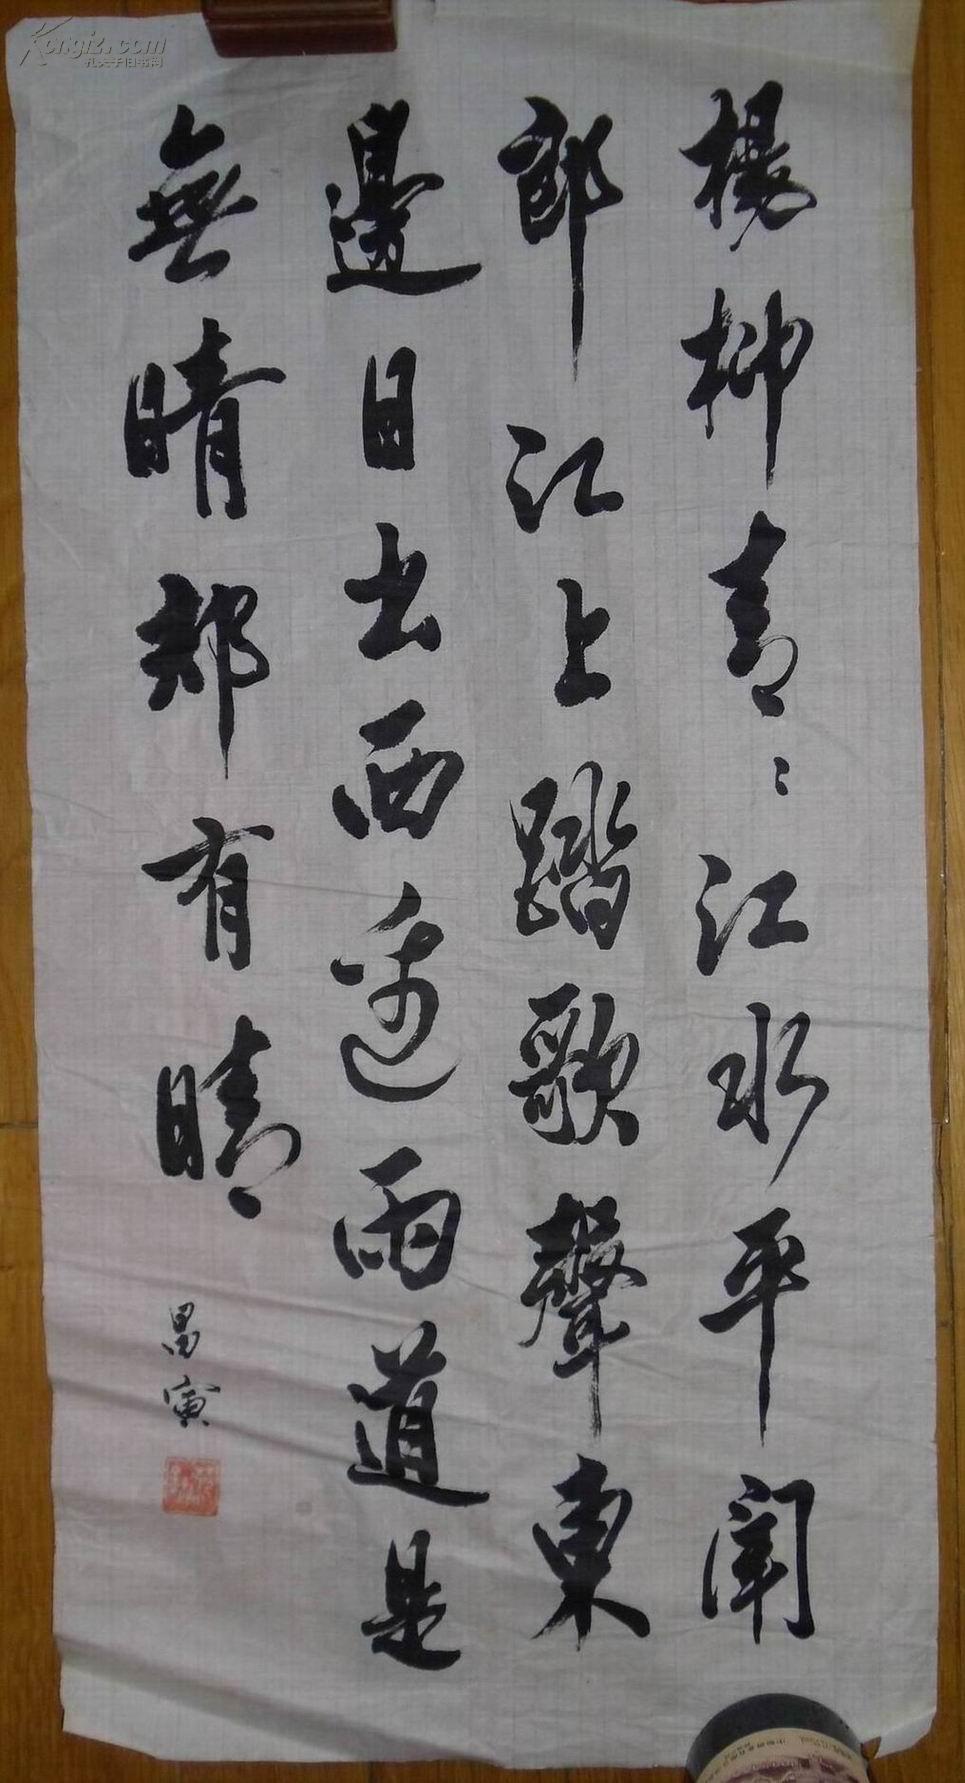 楊柳青〻江水平聞
郎江上踏歌聲東
邊日出西边雨道是
無晴却有晴
昌寅
Kongfz.com
孔夫子旧书网